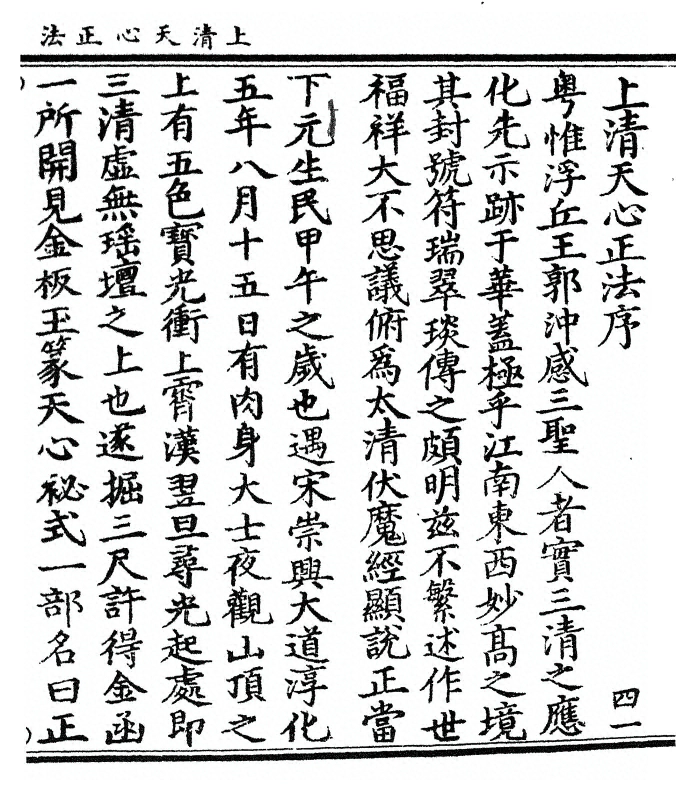 上清天心正法
上清天心正法序
粤惟浮丘王郭沖感三聖人者實三清之應
化先示跡于華蓋極乎江南東西妙髙之境
其封號符瑞翠琰傳之頗明兹不繁述作世
福祥大不思議俯為太清伏魔經顯說正當
下元生民甲午之歲也遇宋崇興大道淳化
五年八月十五日有肉身大士夜觀山頂之
上有五色寳光衝上霄漢翌旦尋光起處即
三清虛無瑶壇之上也遂掘三尺許得金函
一所開見金板玉篆天心祕式一部名曰正
四一